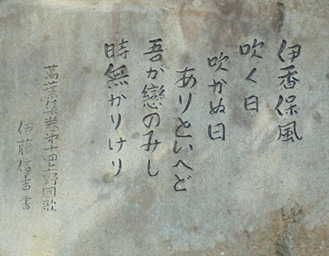 伊香保風
吹く日
吹かぬ日
ありといへど
吾が戀のみし
時無かりけり
萬葉集巻第十四上野国歌
伊藤信吉書